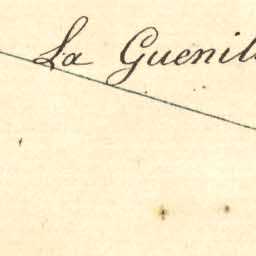 La Guenil